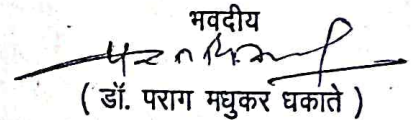 भवदीय
( डॉ. पराग मधुकर धकाते )